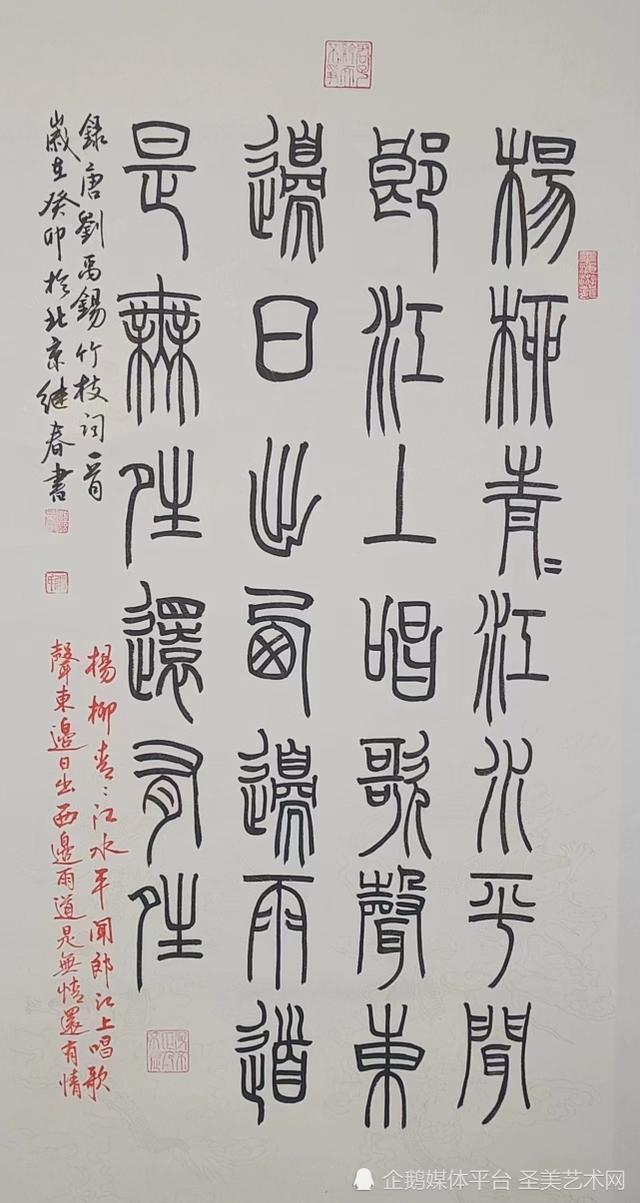 楊柳青〻江水平聞
郎江上唱歌聲東
邊日出西邊雨道
是無情還有情
録唐劉禹錫竹枝词一首
歲在癸卯於北京继春書
楊柳青〻江水平聞郎江上唱歌
聲東邊日出西邊雨道是無情還有情
企鹅媒体平台 圣美艺术网